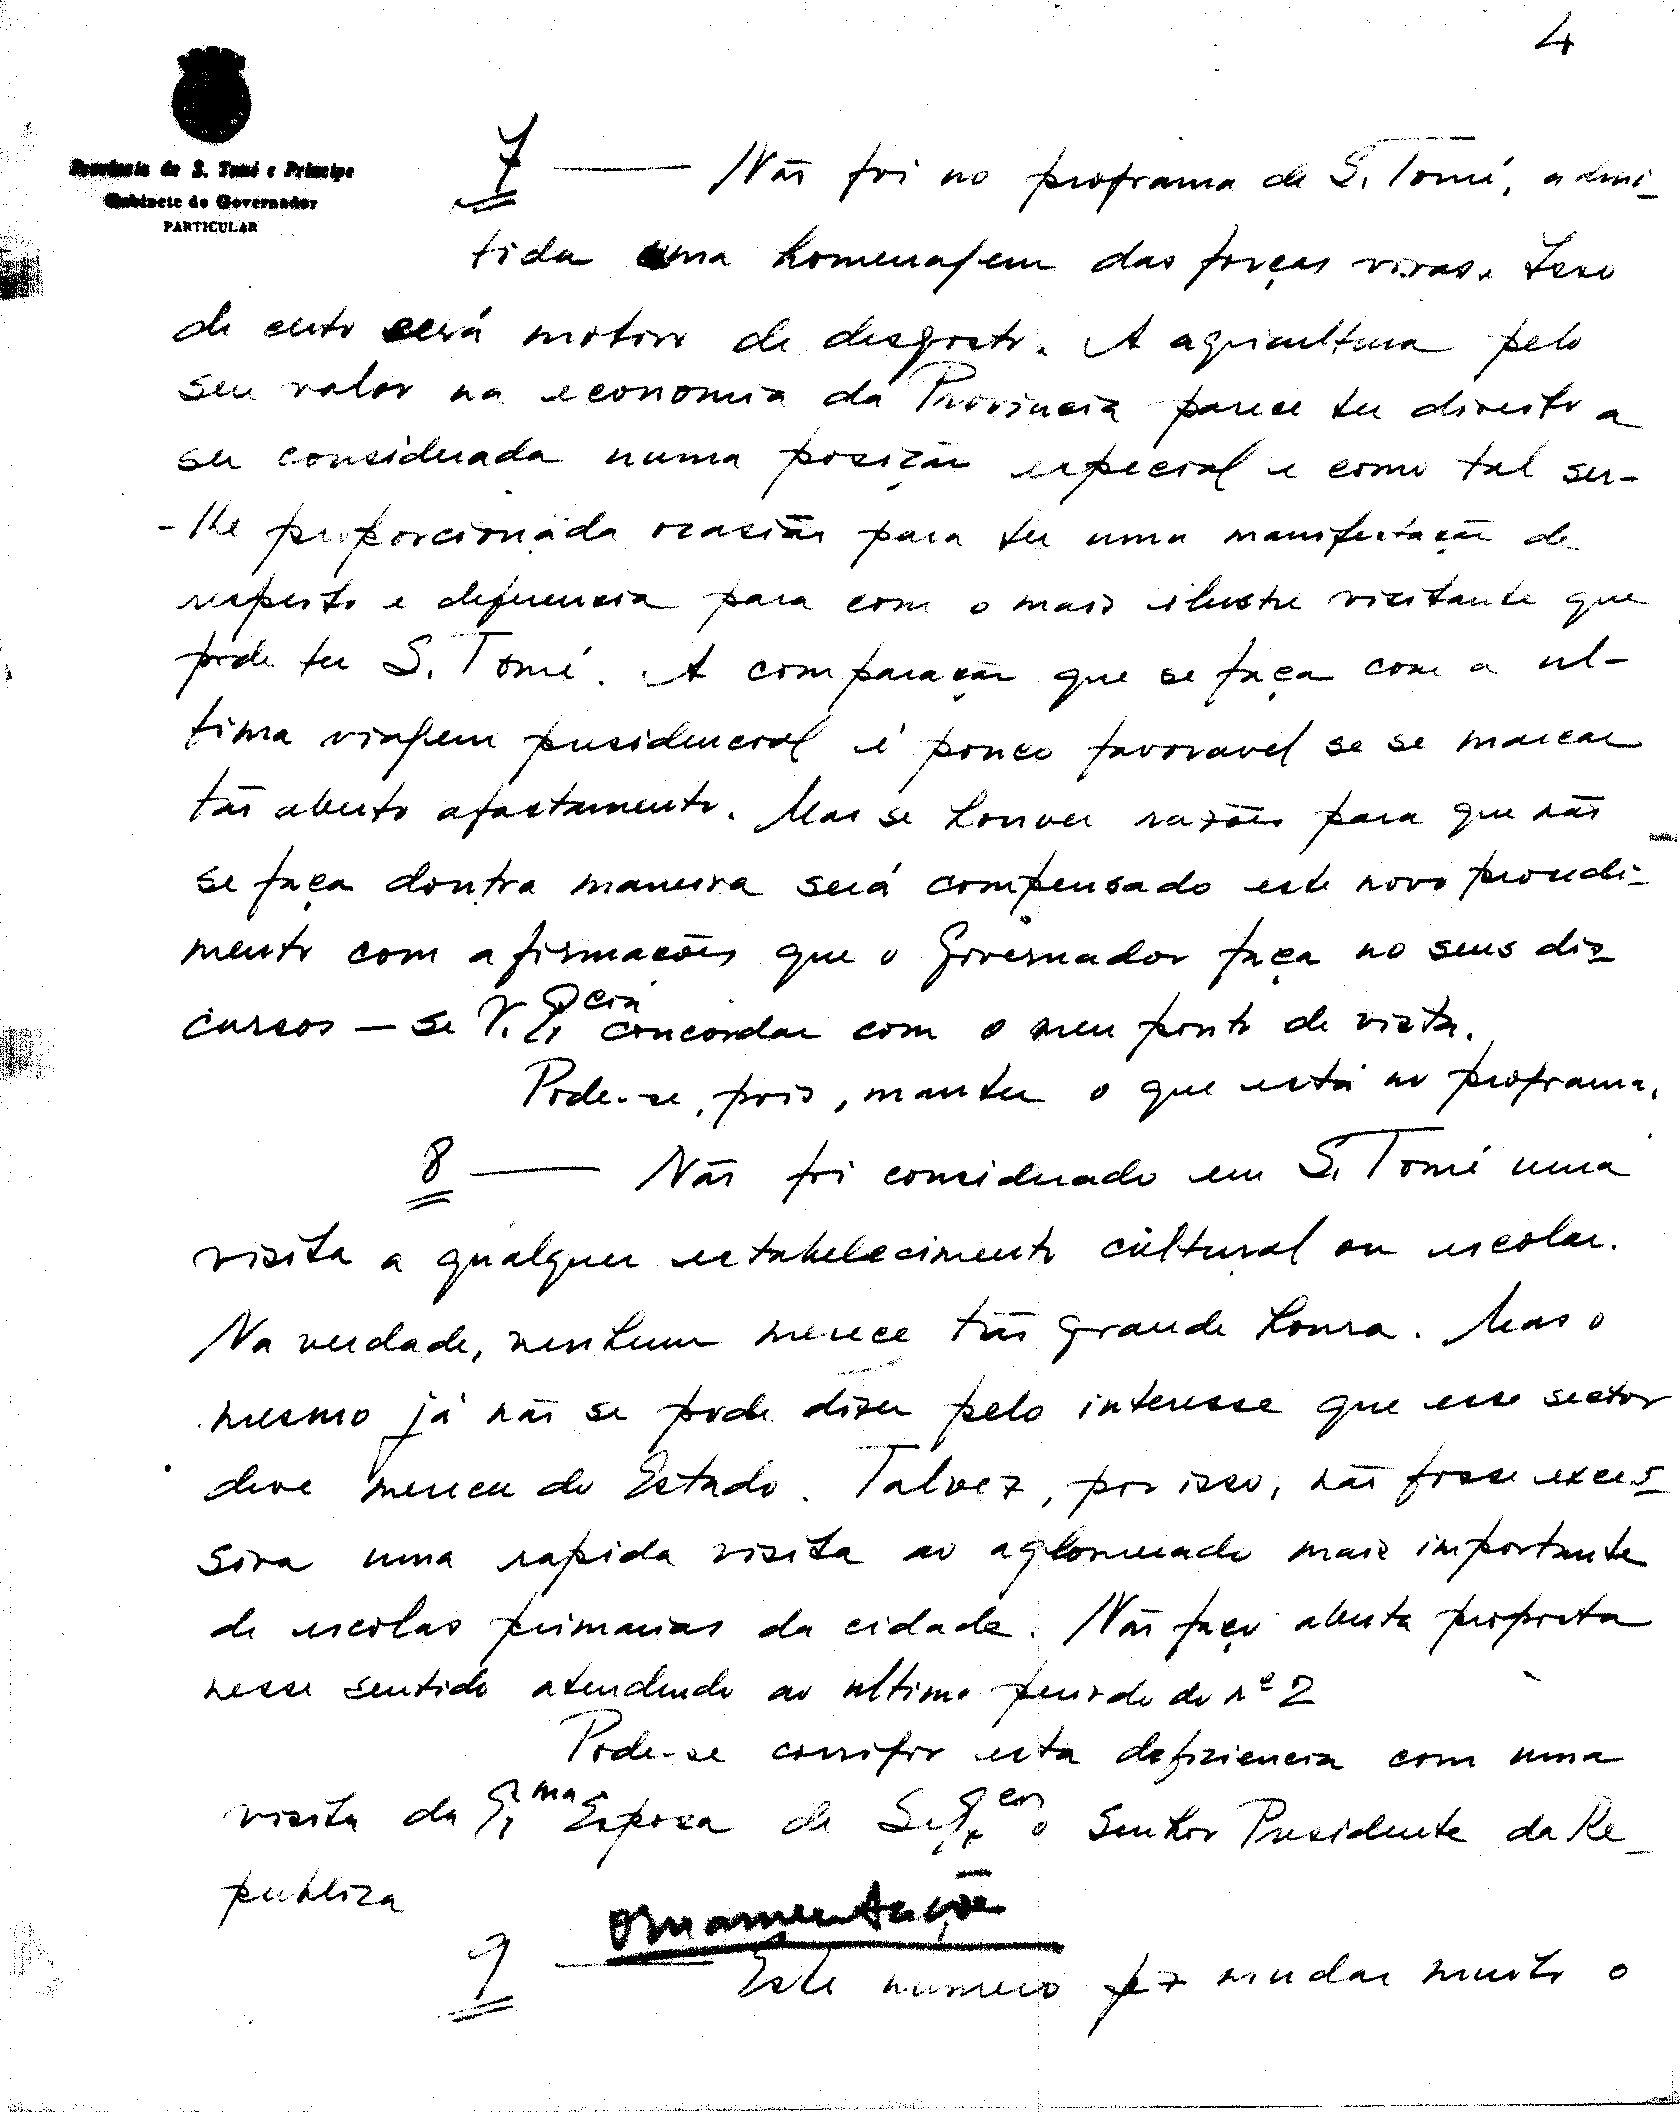 4
Provincia de S. Tomé e Principe
Gabinete do Governador
PARTICULAR
7 — Não foi no programa de S. Tomé, admi-
tida uma homenagem das forças vivas. Isso
de certo será motivo de desgosto. A agricultura pelo
seu valor na economia da Provincia parece ter direito a
ser considerada numa posição especial e como tal ser-
-lhe proporcionada ocasião para ter uma manifestação de
respeito e deferencia para com o mais ilustre visitante que
pode ter S. Tomé. A comparação que se faça com a ul-
tima viagem presidencial é pouco favoravel se se marcar
tão aberto afastamento. Mas se houver razões para que não
se faça doutra maneira será compensado este novo procedi-
mento com afirmações que o Governador faça no seus dis-
cursos — se V. Excia concordar com o meu ponto de vista.
Pode-se, pois, manter o que está no programa.
8 — Não foi considerado em S. Tomé uma
visita a qualquer estabelecimento cultural ou escolar.
Na verdade, nenhum merece tão grande honra. Mas o
mesmo já não se pode dizer pelo interesse que esse sector
deve merecer do Estado. Talvez, por isso, não fosse exces-
siva uma rapida visita ao aglomerado mais importante
de escolas primarias da cidade. Não faço aberta proposta
nesse sentido atendendo ao ultimo periodo do nº 2
Pode-se corrigir esta deficiencia com uma
visita da Exma Esposa de S. Excia o Senhor Presidente da Re-
publica
ornamentação
9 — Este numero fez mudar muito o